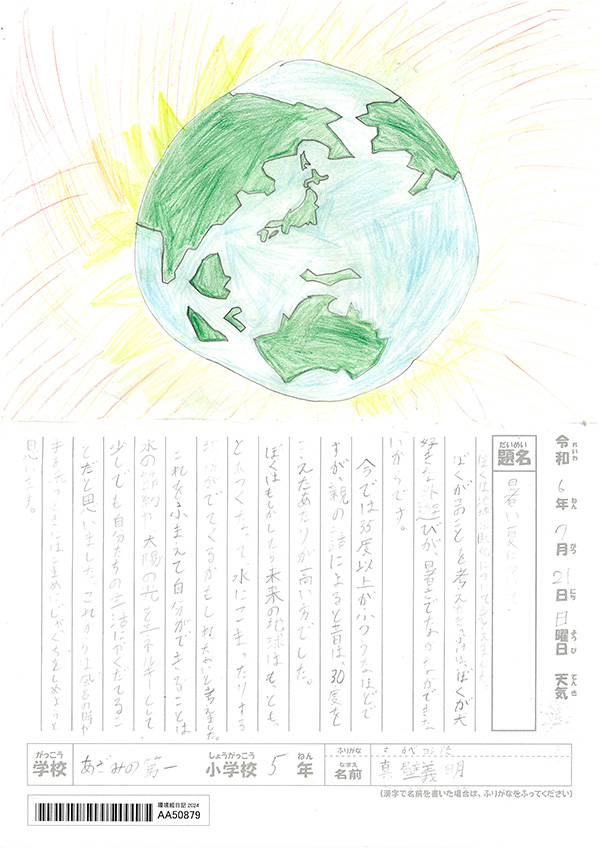 令和 6年 7月 21日 日曜日 天気
れいわ ねん がつ にち ようび てんき
だいめい
題名
暑い夏について
ぼくは地球温暖化について考えました。
ぼくがこのことを考えたきっかけは、ぼくが大
好きな外遊びが、暑さでなかなかできな
いからです。
今では35度以上がふつうなほどで
すが、親の話によると昔は、30度を
こえたあたりが高い方でした。
ぼくはもしかしたら未来の地球はもっとも
とあつくなって水にこまったりする
がでてくるかもしれないと考えました。
これをふまえて自分ができることは
水の節約や太陽の光をエネルギーとして
少しでも自分たちの生活にやくだてるこ
とだと思いました。これからはお風呂の時や
手をあらうときにはこまめにじゃぐちをしめようと
思います。
がっこう しょうがっこう ねん
学校 あざみの第一 小学校 5年
ふりがな
なまえ
名前 真壁義明
(漢字で名前を書いた場合は、ふりがなをふってください)
環境絵日記 2024
AA50879